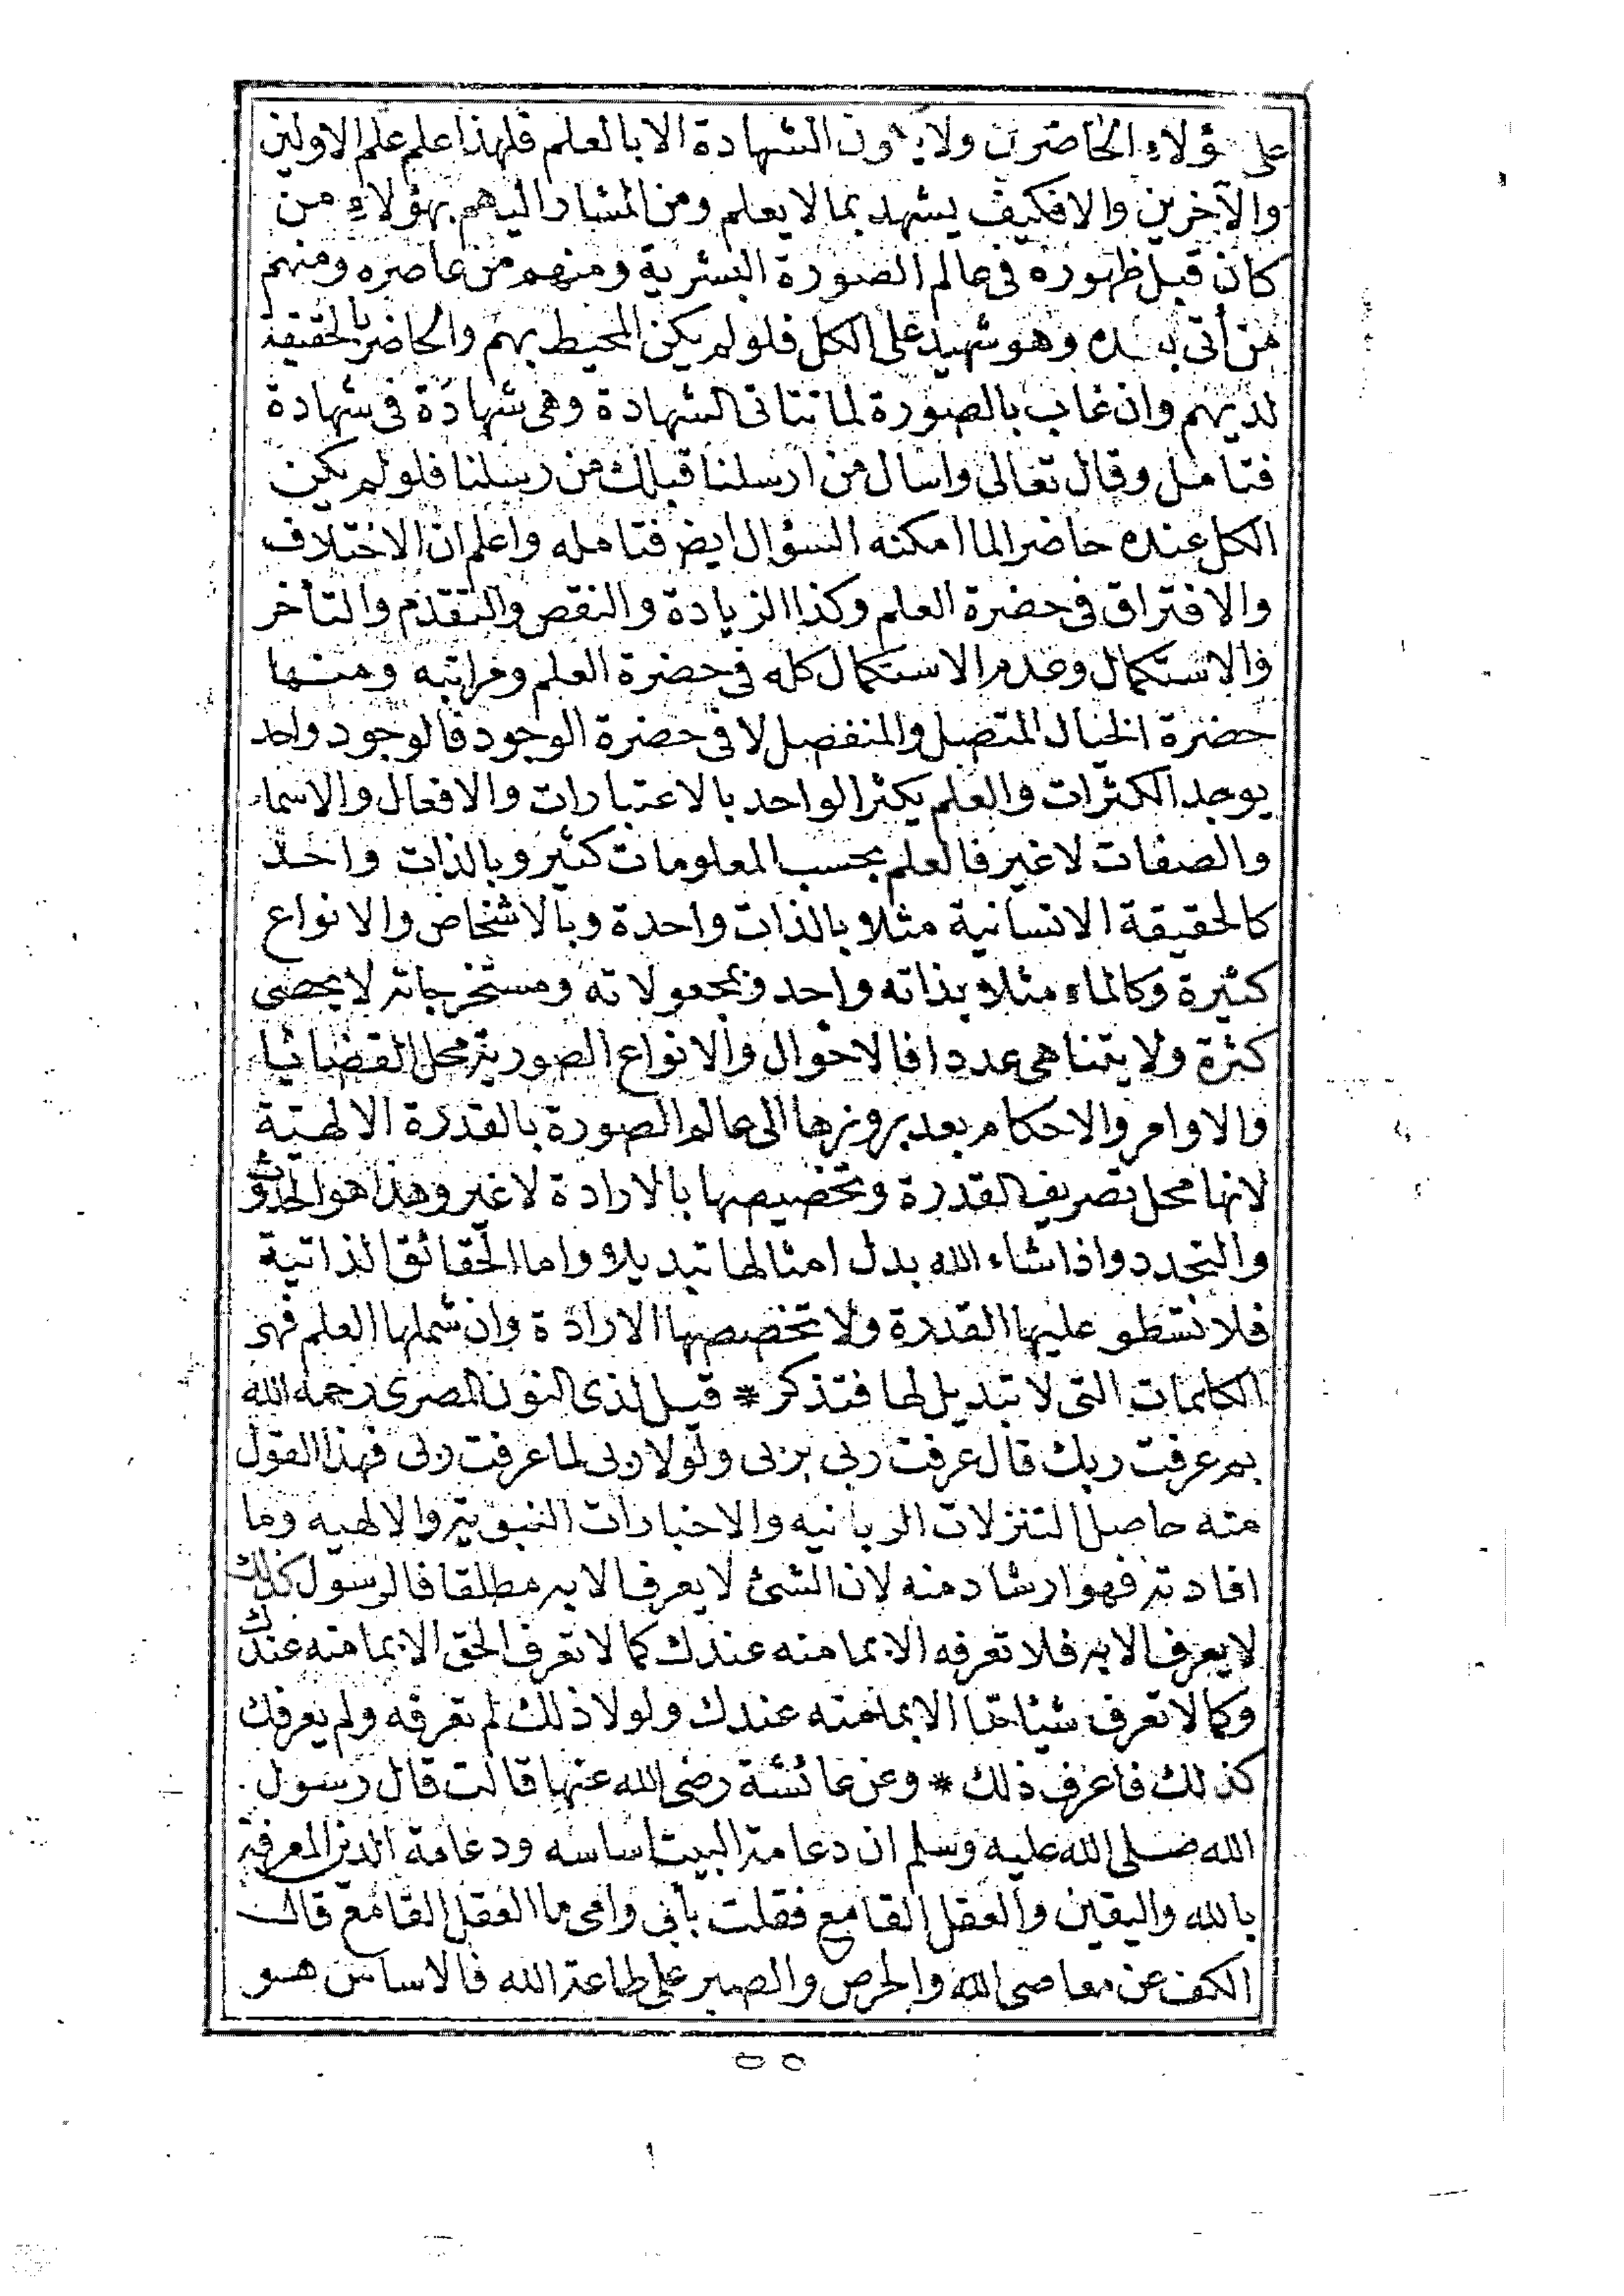 على هؤلاء الحاضرين ولا يكون الشهادة الا بالعلم فلهذا علم علم الاولين
والآخرين والا فكيف يشهد بما لا يعلم ومن المشار اليهم بهؤلاء من
كان قبل ظهوره فى عالم الصورة البشرية ومنهم من عاصره ومنهم
من أتى بعده وهو شهيد على الكل فلو لم يكن المحيط بهم والحاضر بالحقيقة
لديهم وان غاب بالصورة لما تتأتى الشهادة وهى شهادة فى شهادة
فتامل وقال تعالى واسال من ارسلنا قبلك من رسلنا فلو لم يكن
الكل عنده حاضرا لما امكنه السؤال ايضا فتامله واعلم ان الاختلاف
والافتراق فى حضرة العلم وكذا الزيادة والنقص والتقدم والتأخر
والاستكمال وعدم الاستكمال كله فى حضرة العلم ومراتبه ومنها
حضرة الخيال المتصل والمنفصل لا فى حضرة الوجود فالوجود واحد
يوجد الكثرات والعلم يكثر الواحد بالاعتبارات والافعال والاسماء
والصفات لا غير فالعلم بحسب المعلومات كثير وبالذات واحد
كالحقيقة الانسانية مثلا بالذات واحدة وبالاشخاص والانواع
كثيرة وكالماء مثلا بذاته واحد وبمجعولاته ومستخرجاته لا يحصى
كثرة ولا يتناهى عددا فالاحوال والانواع الصورية محل القضايا
والاوامر والاحكام بعد بروزها الى عالم الصورة بالقدرة الالهية
لانها محل تصريف القدرة وتخصيصها بالارادة لا غير وهذا هو الحدوث
والتجدد واذا شاء الله بدل امثالها تبديلا واما الحقائق الذاتية
فلا تسطو عليها القدرة ولا تخصصها الارادة وان شملها العلم فهى
الكلمات التى لا تبديل لها فتذكر * قيل لذى النون المصرى رحمه الله
بم عرفت ربك قال عرفت ربى بربى ولولا ربى لما عرفت ربى فهذا القول
منه حاصل التنزلات الربانيه والاخبارات النبوية والالهيه وما
افادته فهو ارشاد منه لان الشئ لا يعرف الا به مطلقا فالرسول كذلك
لا يعرف الا به فلا تعرفه الا بما منه عندك كما لا تعرف الحق الا بما منه عندك
وكما لا تعرف شيئا حتما الا بما منه عندك ولولا ذلك لم تعرفه ولم يعرفك
كذلك فاعرف ذلك * وعن عائشة رضى الله عنها قالت قال رسول
الله صلى الله عليه وسلم ان دعامة البيت اساسه ودعامة الدين المعرفة
بالله واليقين والعقل القامع فقلت بأبى وامى ما العقل القامع قال
الكف عن معاصى الله والحرص والصبر على طاعة الله فالاساس هو